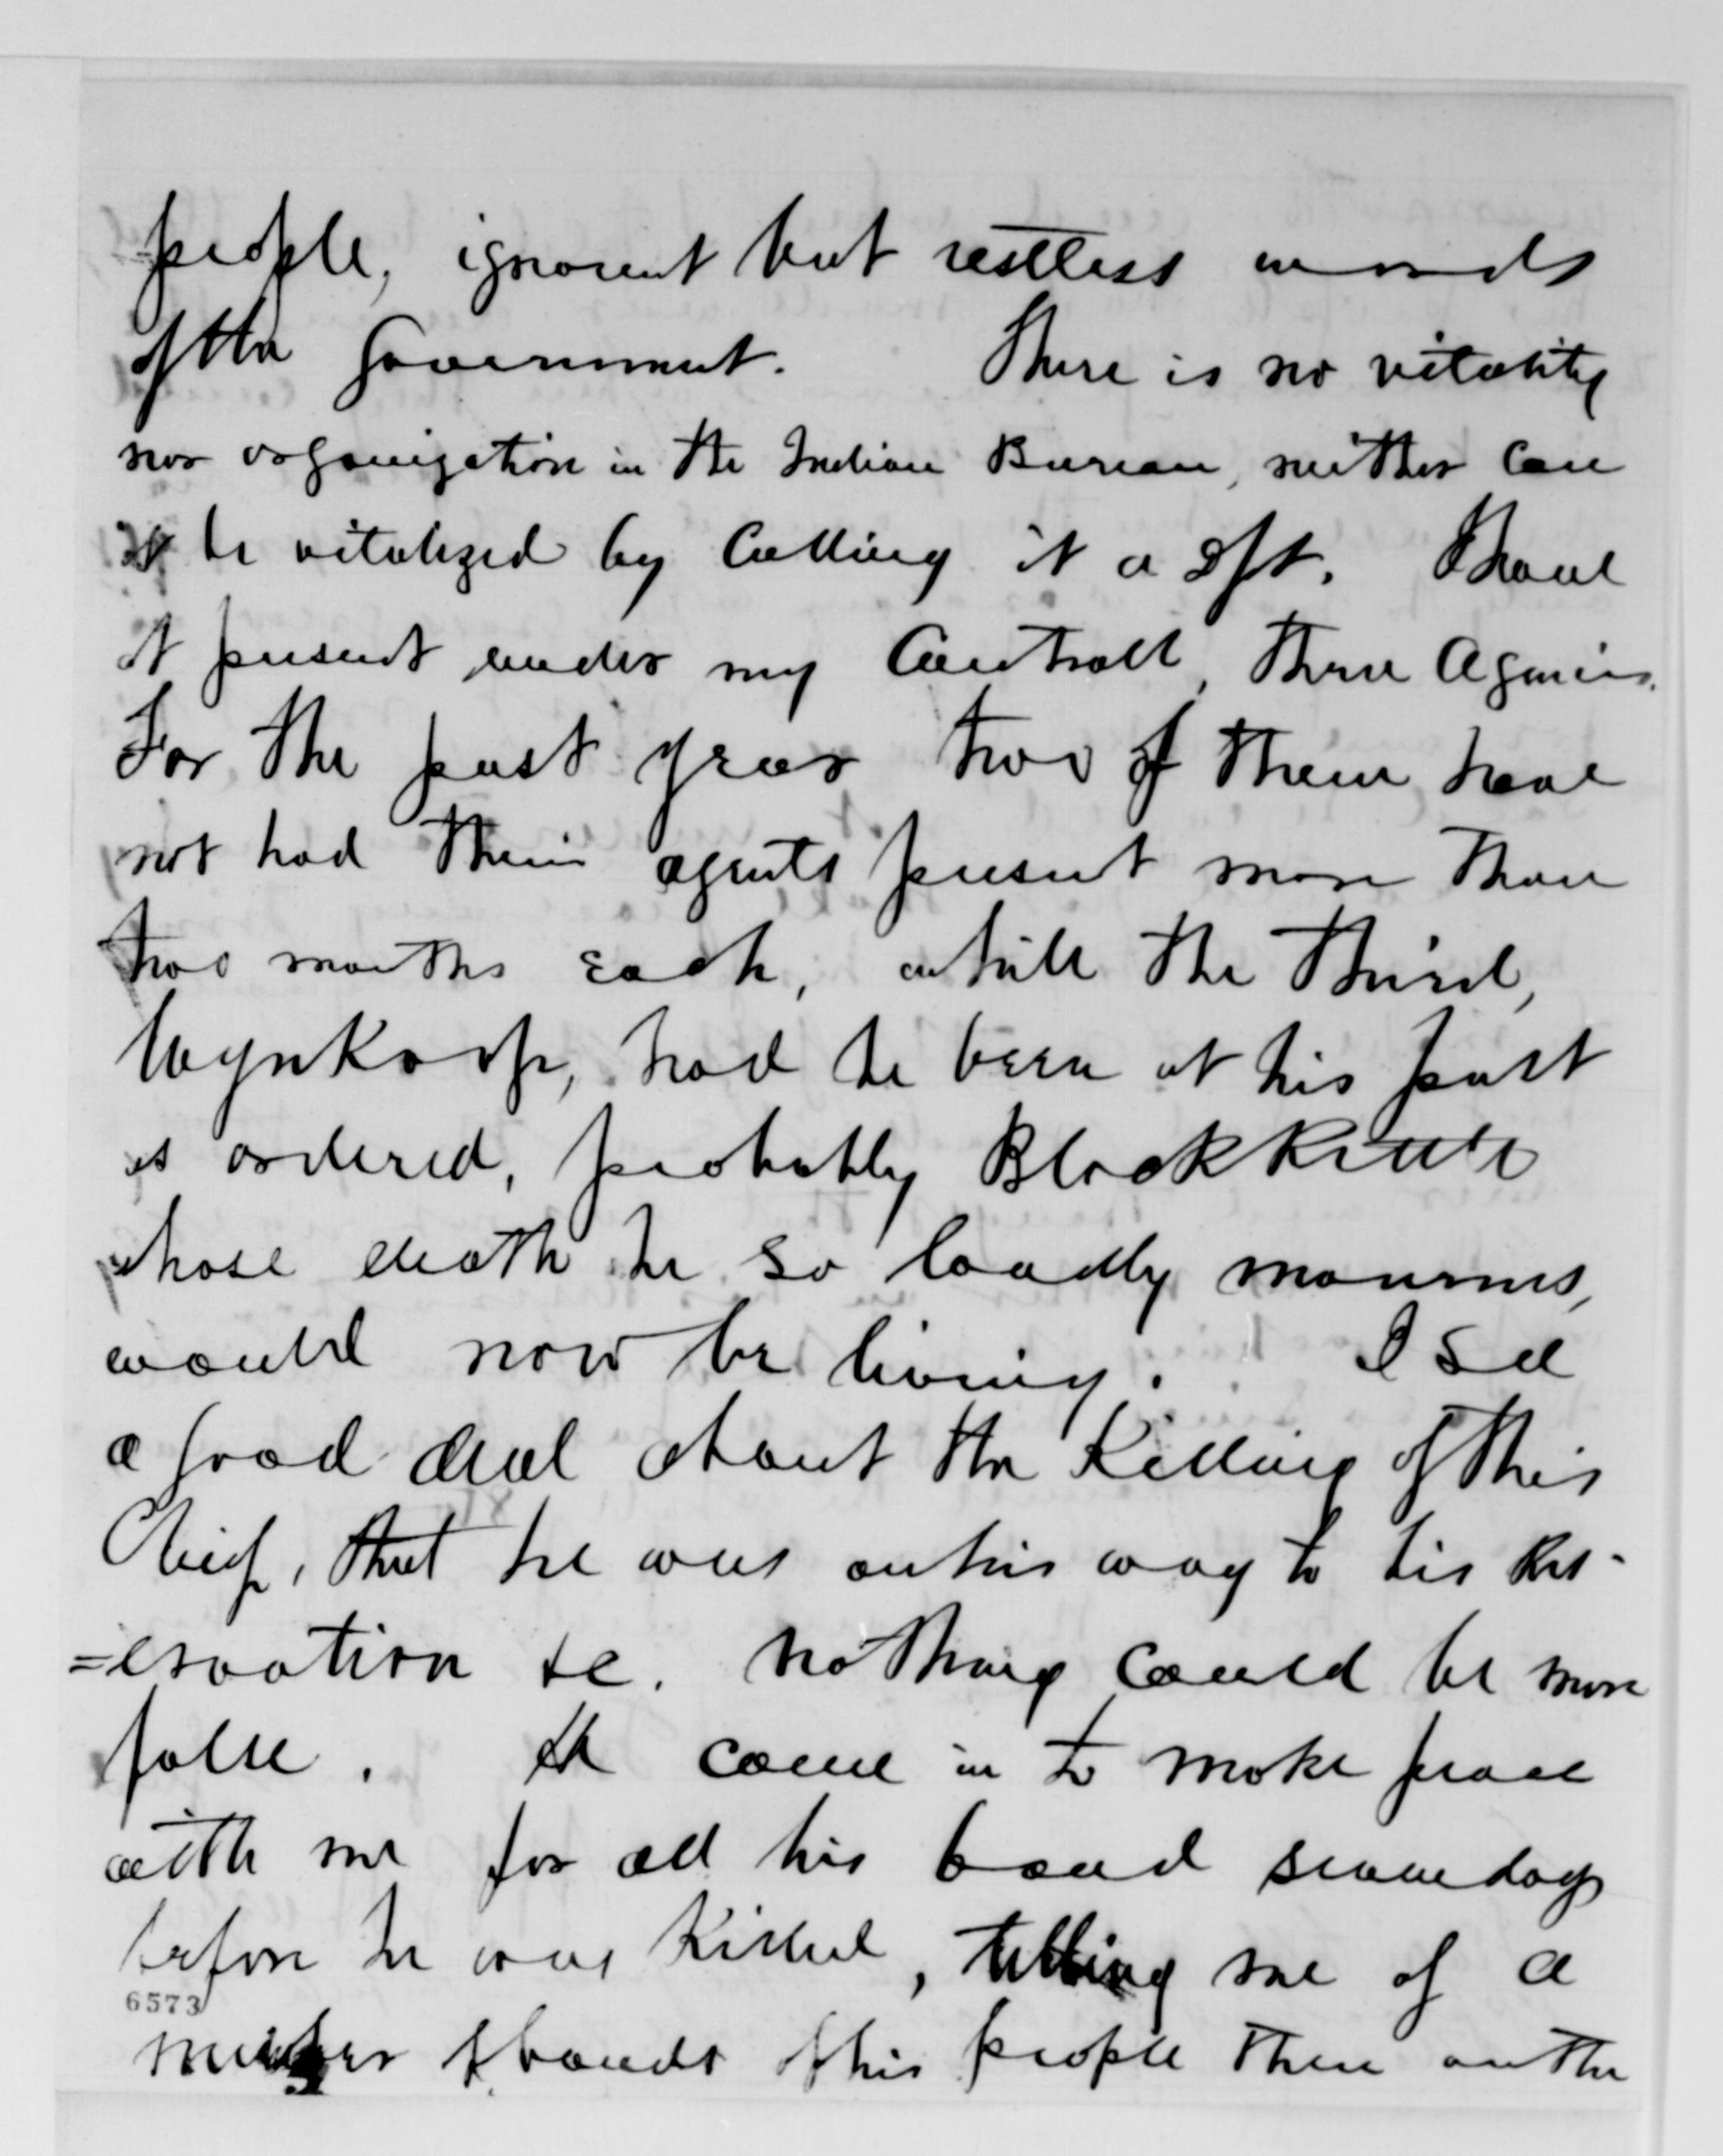 people, ignorant but restless wards
of the Government. There is no vitality
nor organization in the Indian Bureau, neither can
it be vitalized by calling it a Dpt. I have
at present under my Controll, three Agencies.
For the past year two of them have
not had their agents present more than
two months each, while the Third,
Wynkoop, had he been at his post
as ordered, probably Black Kettle
whose death he so loudly mourns,
would now be living. I see
a good deal about the Killing of this
Chief, that he was on his way to his Res-
=ervation &c. nothing could be more
false. He came in to make peace
with me for all his band seven days
before he was Killed, telling me of a
6573
number of bands of his people then on the